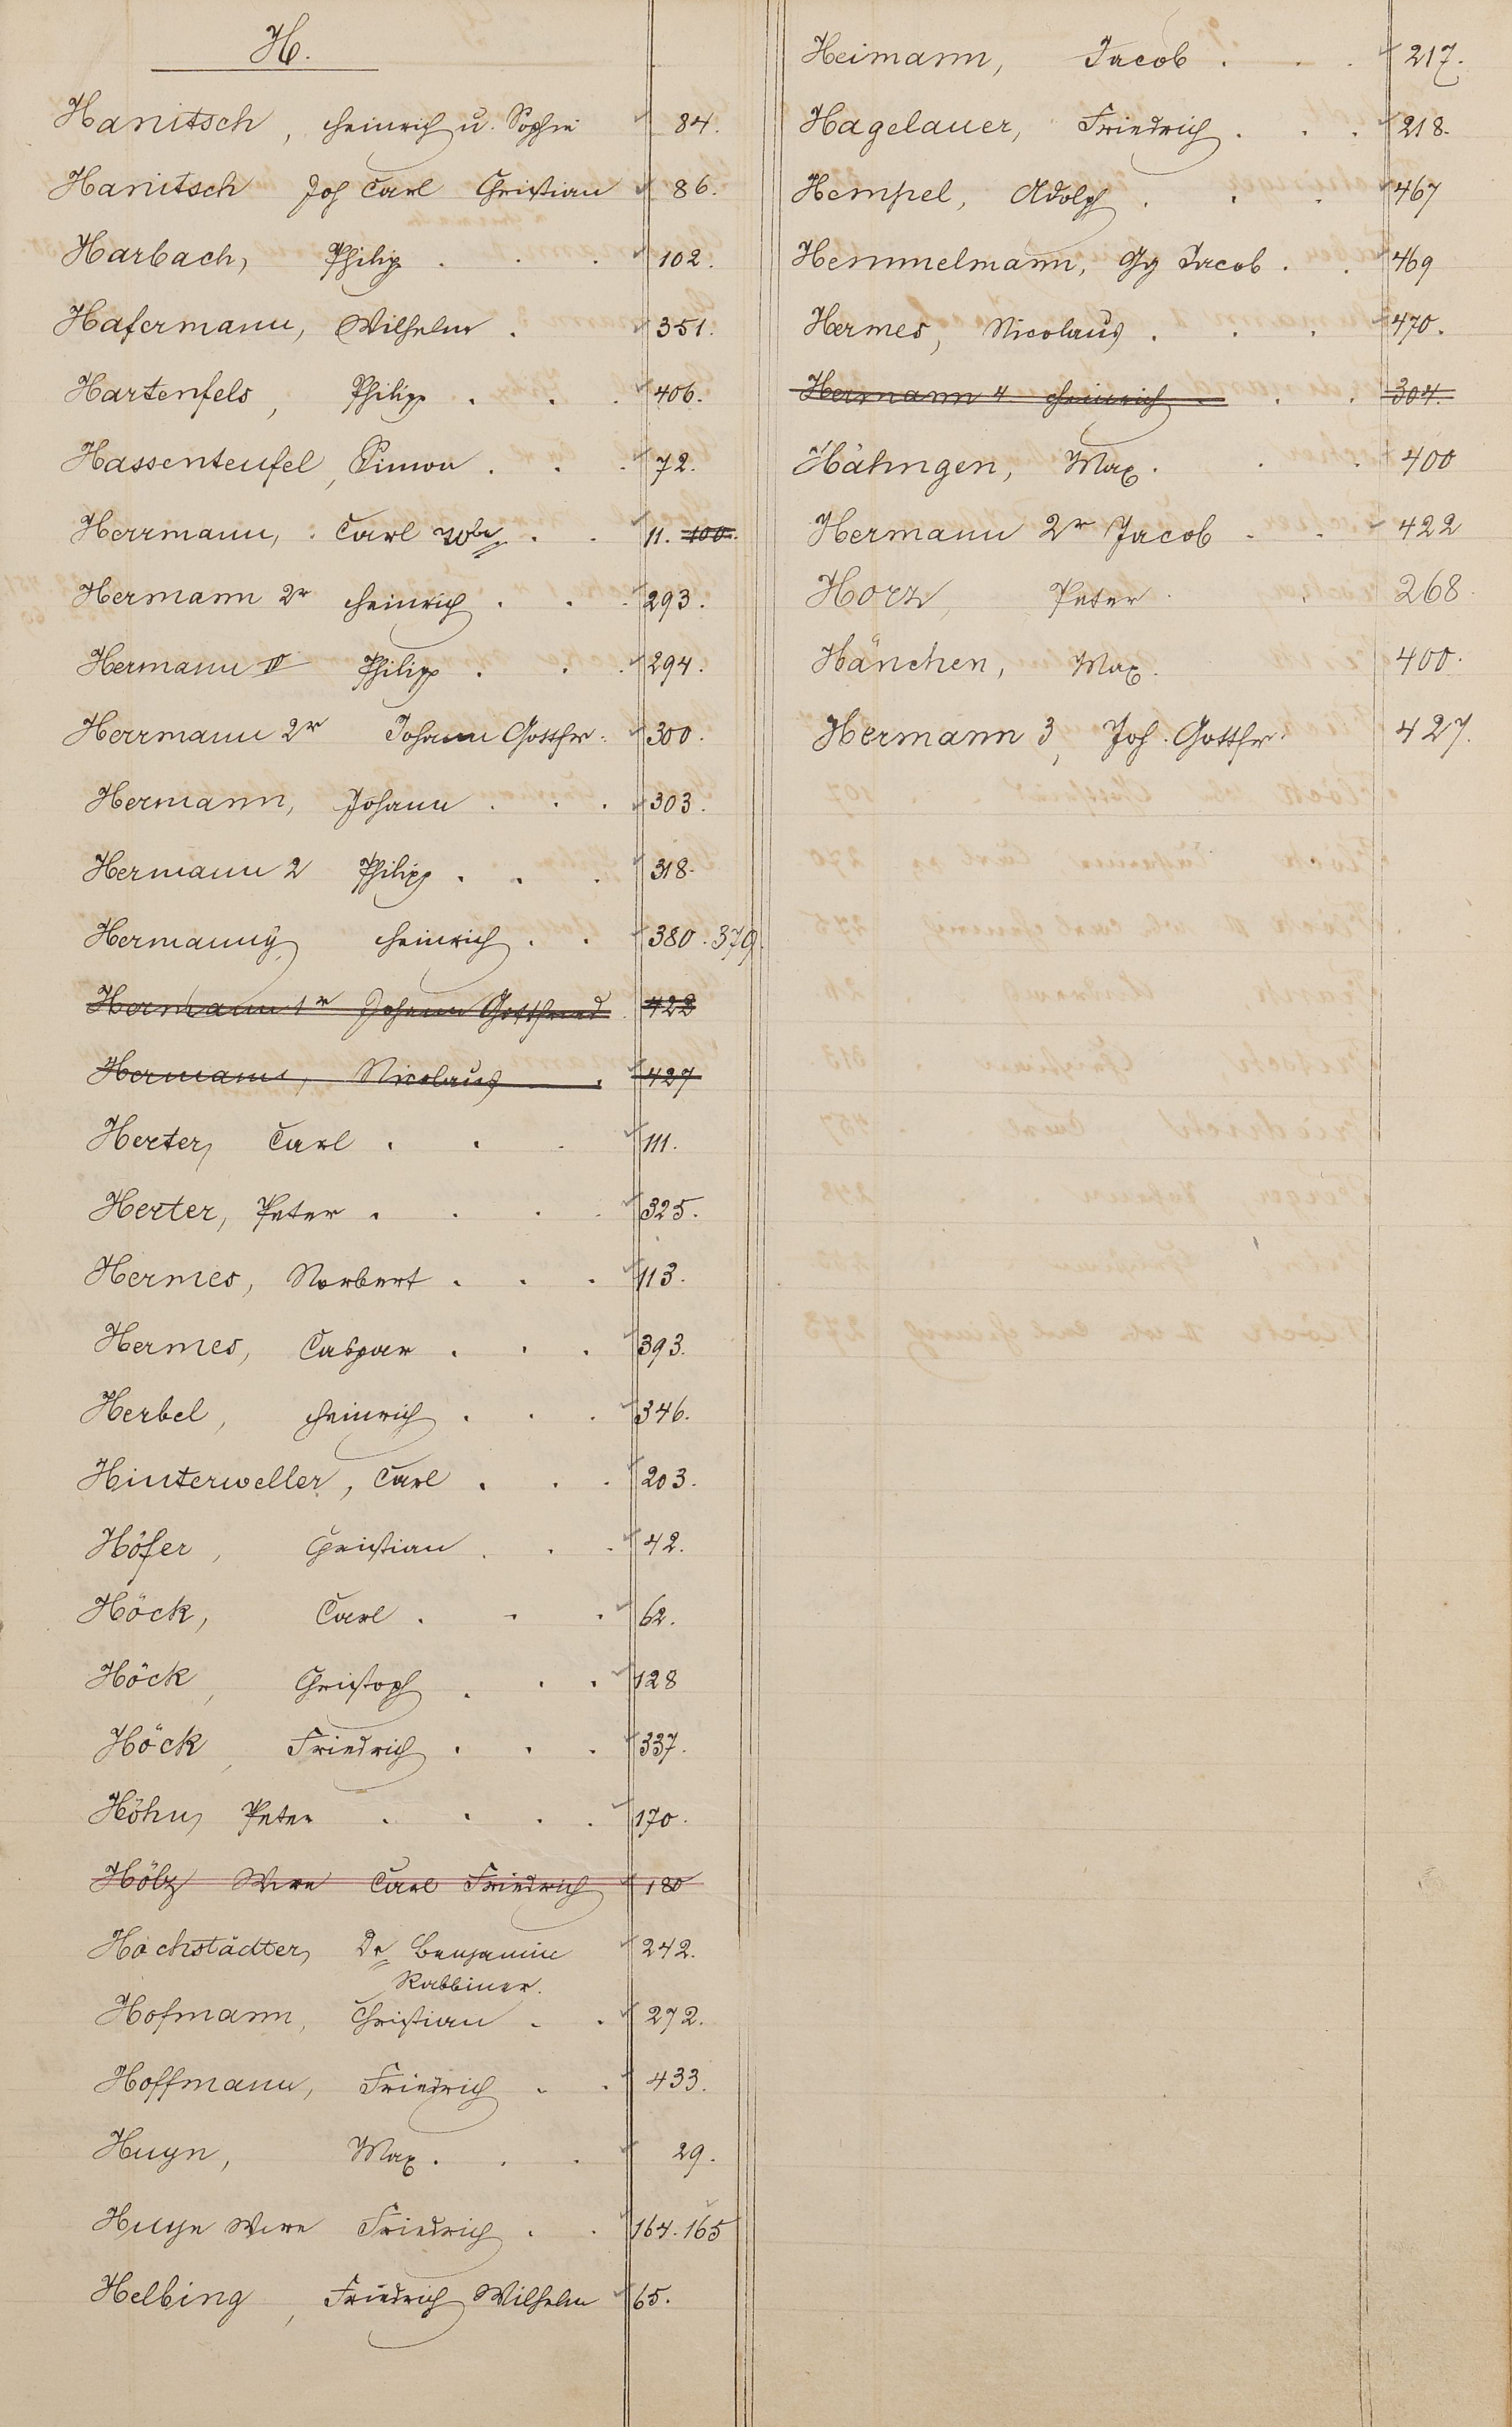 H.
Hanitsch, Heinrich u. Sophie 84.
Hanitsch Joh Carl Christian 86.
Harbach, Philipp . . . 102.
Hafermann, Wilhelm . 351.
Hartenfels, Philipp . . . 406.
Hassenteufel, Simon . . . 72.
Herrmann, Carl . . 11. 100.
Hermann 2r Heinrich . . . 293.
Hermann IV Philipp . . . 294.
Herrmann 2r Johann Gottfr. 300.
Hermann, Johann . . . 303.
Hermann 2 Philipp . . . 318.
Hermanny, Heinrich . . 380. 379.
Hermann 1r Johann Gottfried 423
Hermann, Nicolaus . 427
Herter, Carl . . . 111.
Herter, Peter . . . . 325.
Hermes, Norbert . . . 113.
Hermes, Caspar . . . 393.
Herbel, Heinrich . . . 346.
Hinterweller, Carl . . . 203.
Höfer, Christian . . . 42.
Höck, Carl . . . 62.
Höck, Christoph . . . 128
Höck, Friedrich . . . 337.
Höhn, Peter . . . . 170.
Hölz Wwe Carl Friedrich 180
Hochstädter, Dr Benjamin 242.
Rabbiner.
Hofmann, Christian . . 272.
Hoffmann, Friedrich . . 433.
Huyn, Max . . . 29.
Huyn Wwe Friedrich . . 164. 165
Helbing, Friedrich Wilhelm 65.
Heimann, Jacob . . . 217.
Hagelauer, Friedrich . . . 218.
Hempel, Adolph . . . 467
Hemmelmann, Gg Jacob . . 469
Hermes, Nicolaus . . . 470.
Hermann 4 Heinrich . . . 304.
Hähngen, Max . . . 400
Hermann 2r Jacob . . 422
Horz, Peter . . 268.
Hänchen, Max. 400.
Hermann 3, Joh. Gottfr. 427.